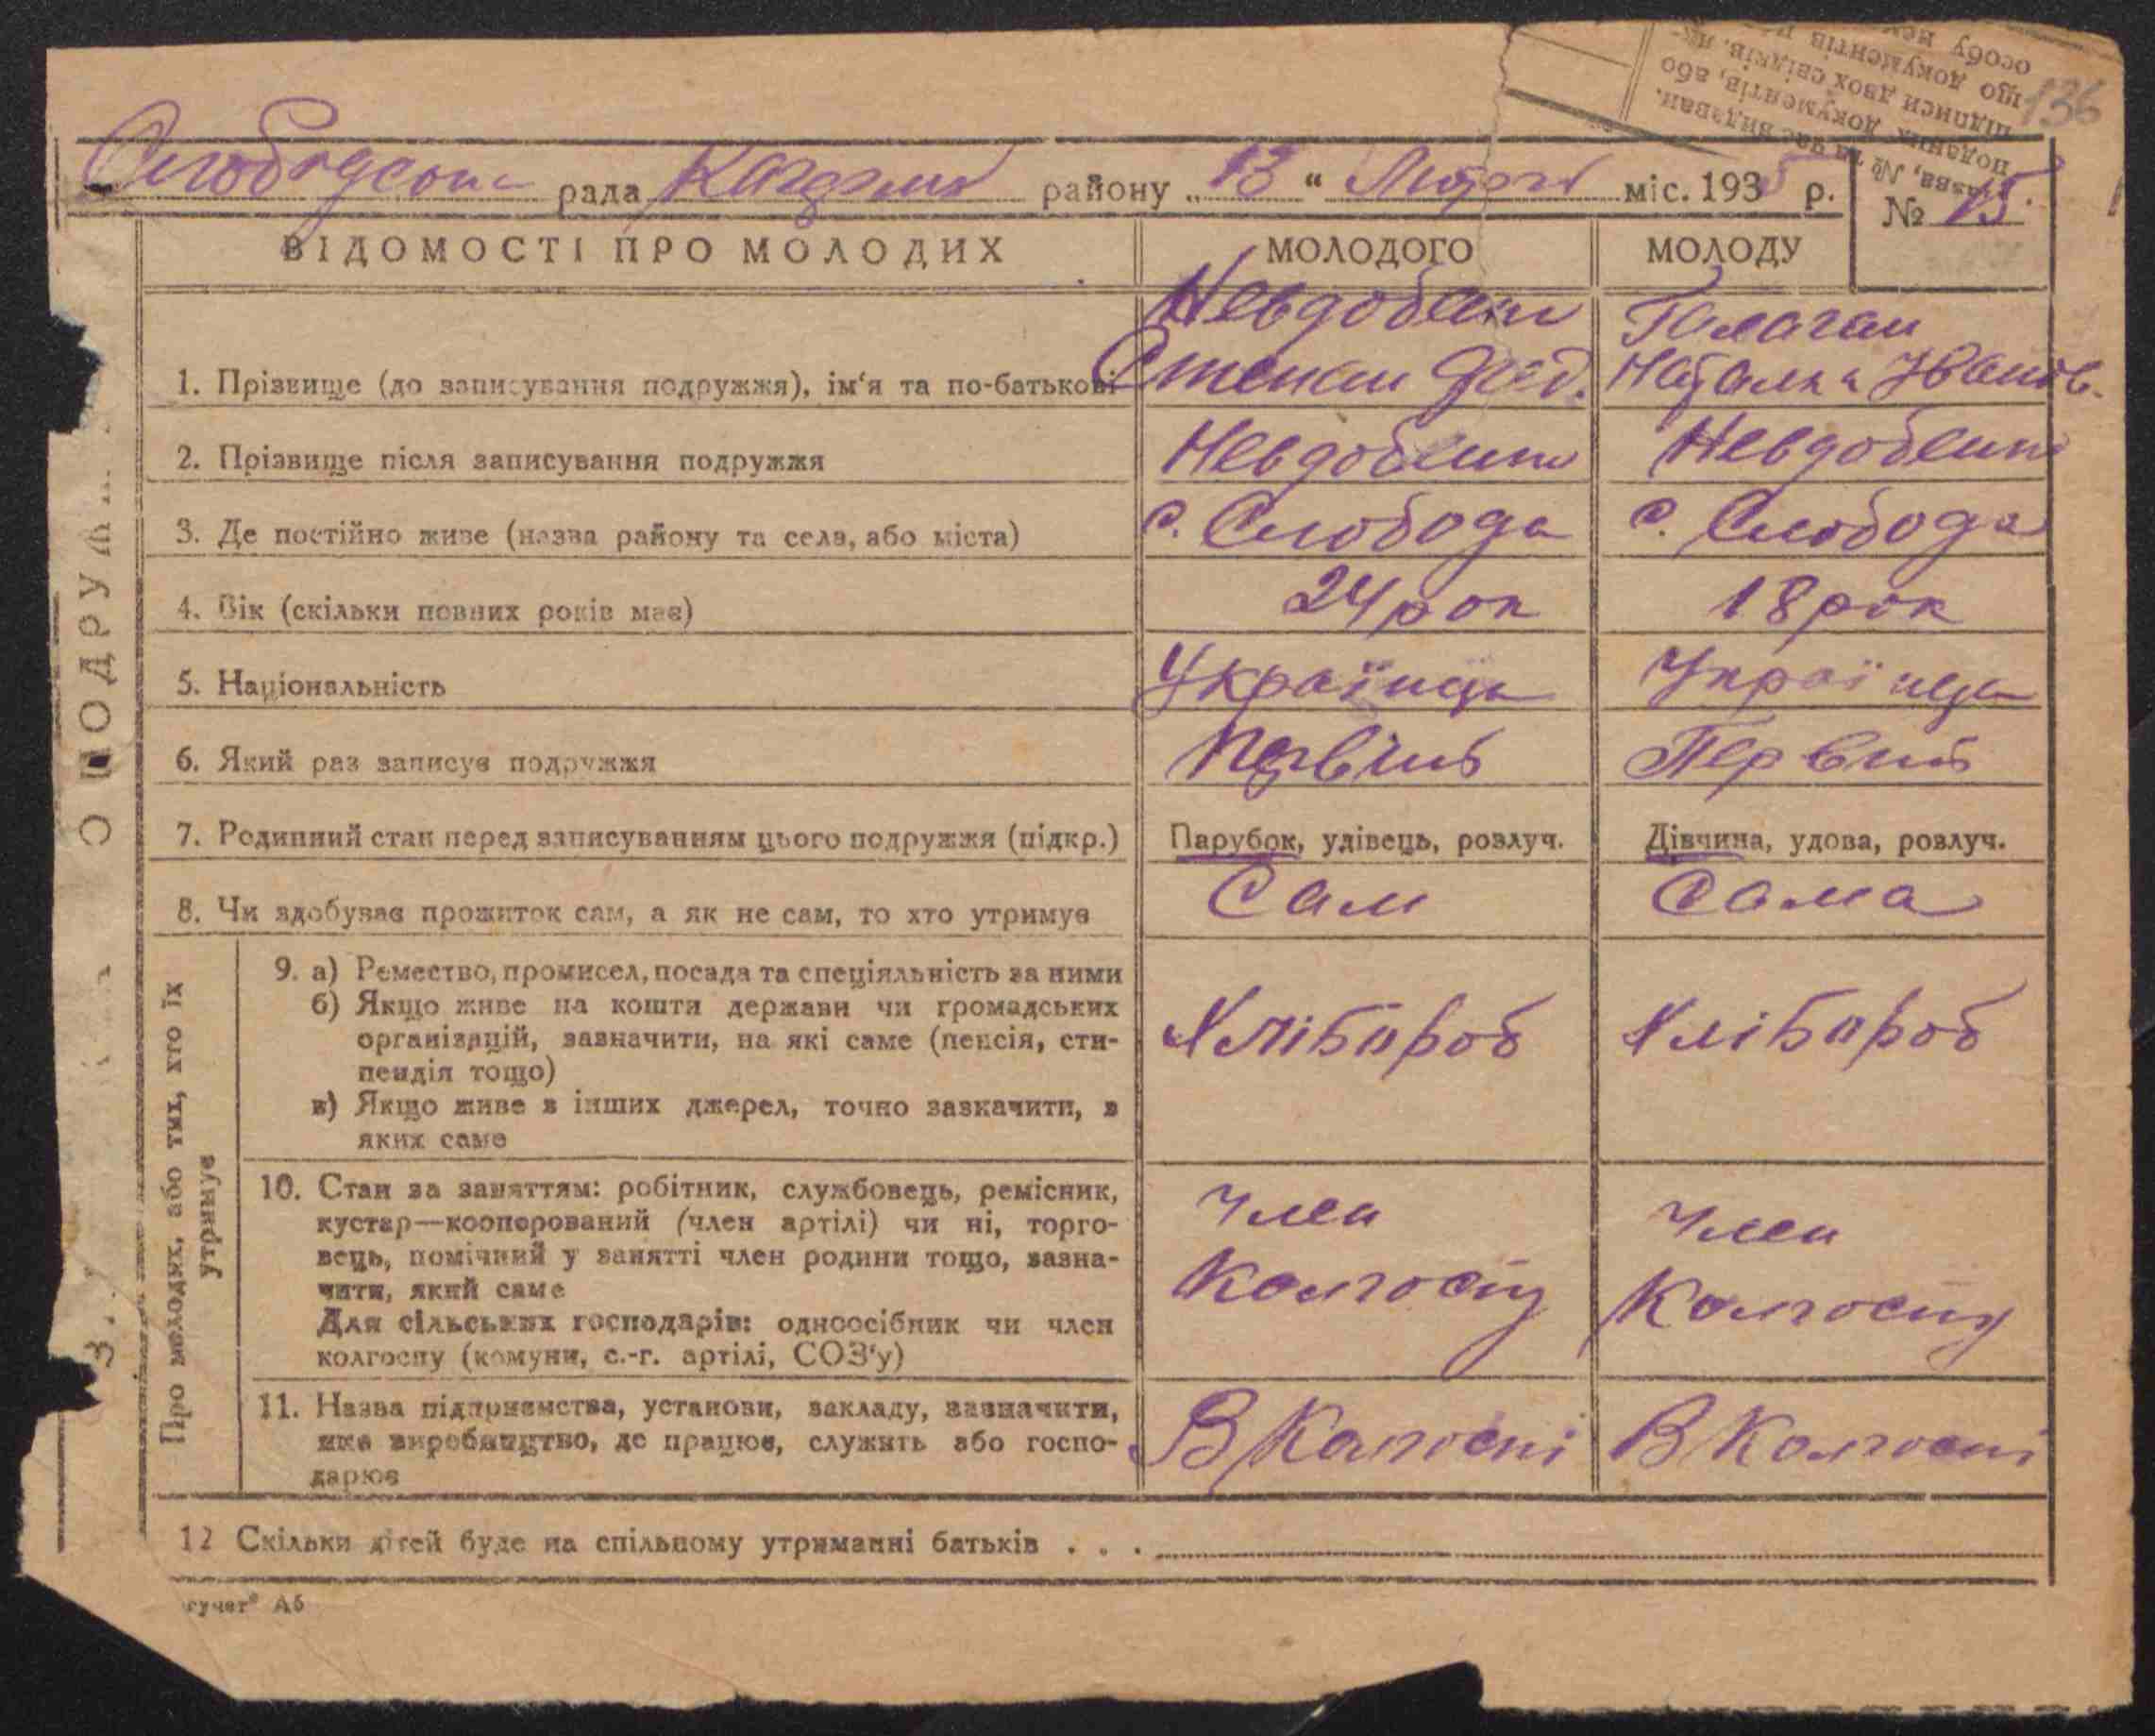 136
Слободська рада району „13“ Лютого міс. 1935 р.
№ 15.
ВІДОМОСТІ ПРО МОЛОДИХ
МОЛОДОГО
МОЛОДУ
1. Прізвище (до записування подружжя), ім‘я та по-батькові
Невдобенко
Степан Фед.
Галаган
Наталка Іванов.
2. Прізвище після записування подружжя
Невдобенко
Невдобенко
3. Де постійно живе (назва району та села, або міста)
с. Слобода
с. Слобода
4. Вік (скільки повних років має)
24 рок
18 рок
5. Національність
Українць
Українца
6. Який раз записує подружжя
Первий
Первий
7. Родинний стан перед записуванням цього подружжя (підкр.)
Парубок, удівець, розлуч.
Дівчина, удова, розлуч.
8. Чи здобуває прожиток сам, а як не сам, то хто утримує
Сам
Сама
Про молодих, або тих, хто їх утримує
9. а) Ремество, промисел, посада та спеціяльність за ними
б) Якщо живе на кошти держави чи громадських
організацій, зазначити, на які саме (пенсія, сти-
пендія тощо)
в) Якщо живе з інших джерел, точно зазначити, з
яких саме
Хлібороб
Хлібороб
10. Стан за заняттям: робітник, службовець, ремісник,
кустар—кооперований (член артілі) чи ні, торго-
вець, помічний у занятті член родини тощо, зазна-
чити, який саме
Для сільських господарів: одноосібник чи член
колгоспу (комуни, с.-г. артілі, СОЗ‘у)
Член
Колгоспу
Член
Колгоспу
11. Назва підприємства, установи, закладу, зазначити,
яке виробництво, де працює, служить або госпо-
дарює
В Колгоспі
В Колгоспі
12 Скільки дітей буде на спільному утриманні батьків . . .